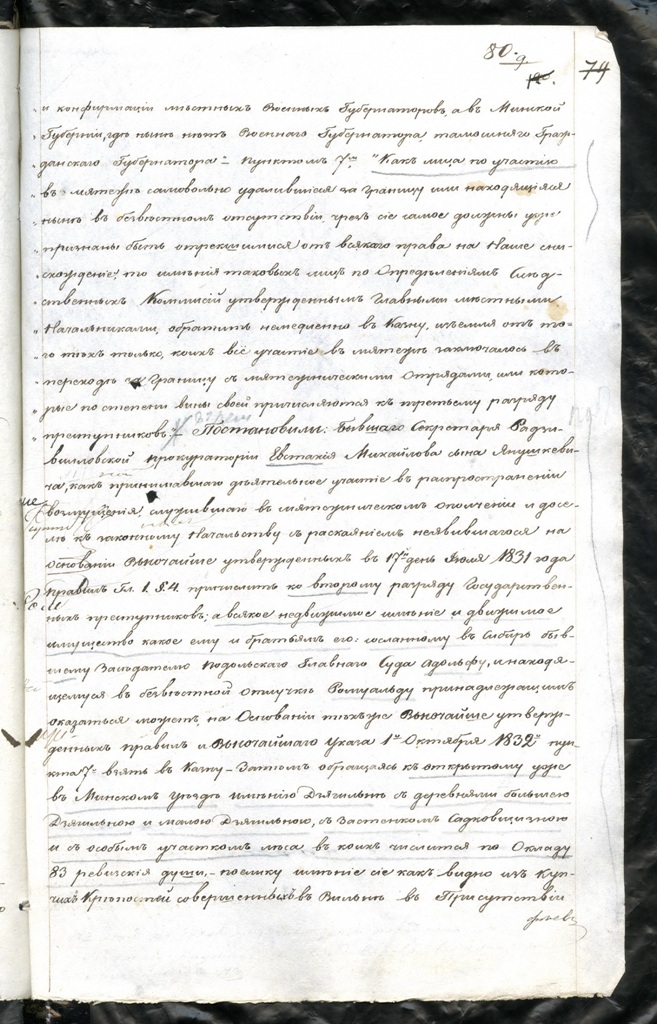 80.
9.
79
„ и конфирмаціи мѣстныхъ Военныхъ Губернаторовъ, а въ Минской
„ Губерніи, гдѣ нынѣ нѣтъ Военнаго Губернатора, тамошняго Граж-
„ данскаго Губернатора – пунктомъ 7мъ „Какъ лица по участію
„ въ мятежѣ самовольно удалившіяся за Границу или находящіяся
„ нынѣ въ безвѣстномъ отсутствіи, чрезъ сіе самое должны уже
„ признаны быть отрекшимися отъ всякаго права на Наше сни-
„ схожденіе, то имѣнія таковыхъ лицъ по Опредѣленіямъ Слѣд-
„ ственныхъ Коммисій утвержденнымъ Главными мѣстными
„ Начальниками, обратить немедленно въ Казну, изъемля отъ то-
„ го тѣхъ только, коихъ всё участіе въ мятежѣ заключалось въ
„ переходѣ за Границу съ мятежническими Отрядами, или кото-
„ рые по степени вины своей причисляются къ третьему разряду
„ преступниковъ“ Постановили: Бывшаго Секретаря Радзи-
вилловской Прокураторіи Евстахія Михайлова сына Янушкеви-
ча, какъ принимавшаго дѣятельное участіе въ распространеніи
возмущенія, служившаго въ мятежническомъ ополченіи и досе-
лѣ къ законному Начальству съ раскаяніемъ неявившагося на
основаніи Высочайше утвержденныхъ въ 17й день Іюля 1831 года
правилъ Гл. 1. §. 4. причислить ко второму разряду Государствен-
ныхъ преступниковъ; а всякое недвижимое имѣніе и движимое
имущество какое ему и братьямъ его: сосланному въ Сибирь быв-
шему Засѣдателю Подольскаго Главнаго Суда Адольфу, и находя-
щемуся въ безвѣстной отлучкѣ Ромуальду принадлежащимъ
оказаться можетъ, на Основаніи тѣхъже Высочайше утверж-
денныхъ правилъ и Высочайшаго Указа 1го Октября 1832го пун-
кта 7го взять въ Казну – Затѣмъ обращаясь къ открытому уже
въ Минскомъ Уѣздѣ имѣнію Дзягильнѣ съ деревнями большею
Дзягильною и малою Дзягильною, съ Застенкомъ Садковщизною
и съ особымъ участкомъ лѣса въ коихъ числится по Окладу
83 ревизскія души, – поелику имѣніе сіе какъ видно изъ Куп-
чихъ Крѣпостей совершенныхъ въ Вильнѣ въ Присутствіи